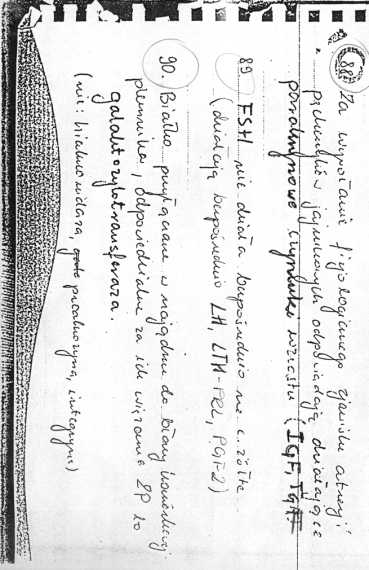 88. Za wywołanie fizjologicznego zjawiska atrezji
pęcherzyków jajnikowych odpowiadają działające
parakrynowo czynniki wzrostu (IGF, TGF
89 FSH nie działa bezpośrednio na c. żółte
(działają bezpośrednio LH, LTH-PRL, PGF2)
90. Białko związane w najądrzu do błony komórkowej
plemnika, odpowiedzialne za ich wiązanie ZP to
galaktozylotransferaza.
(nie: białko wiążące, proakrozyna, integryna)